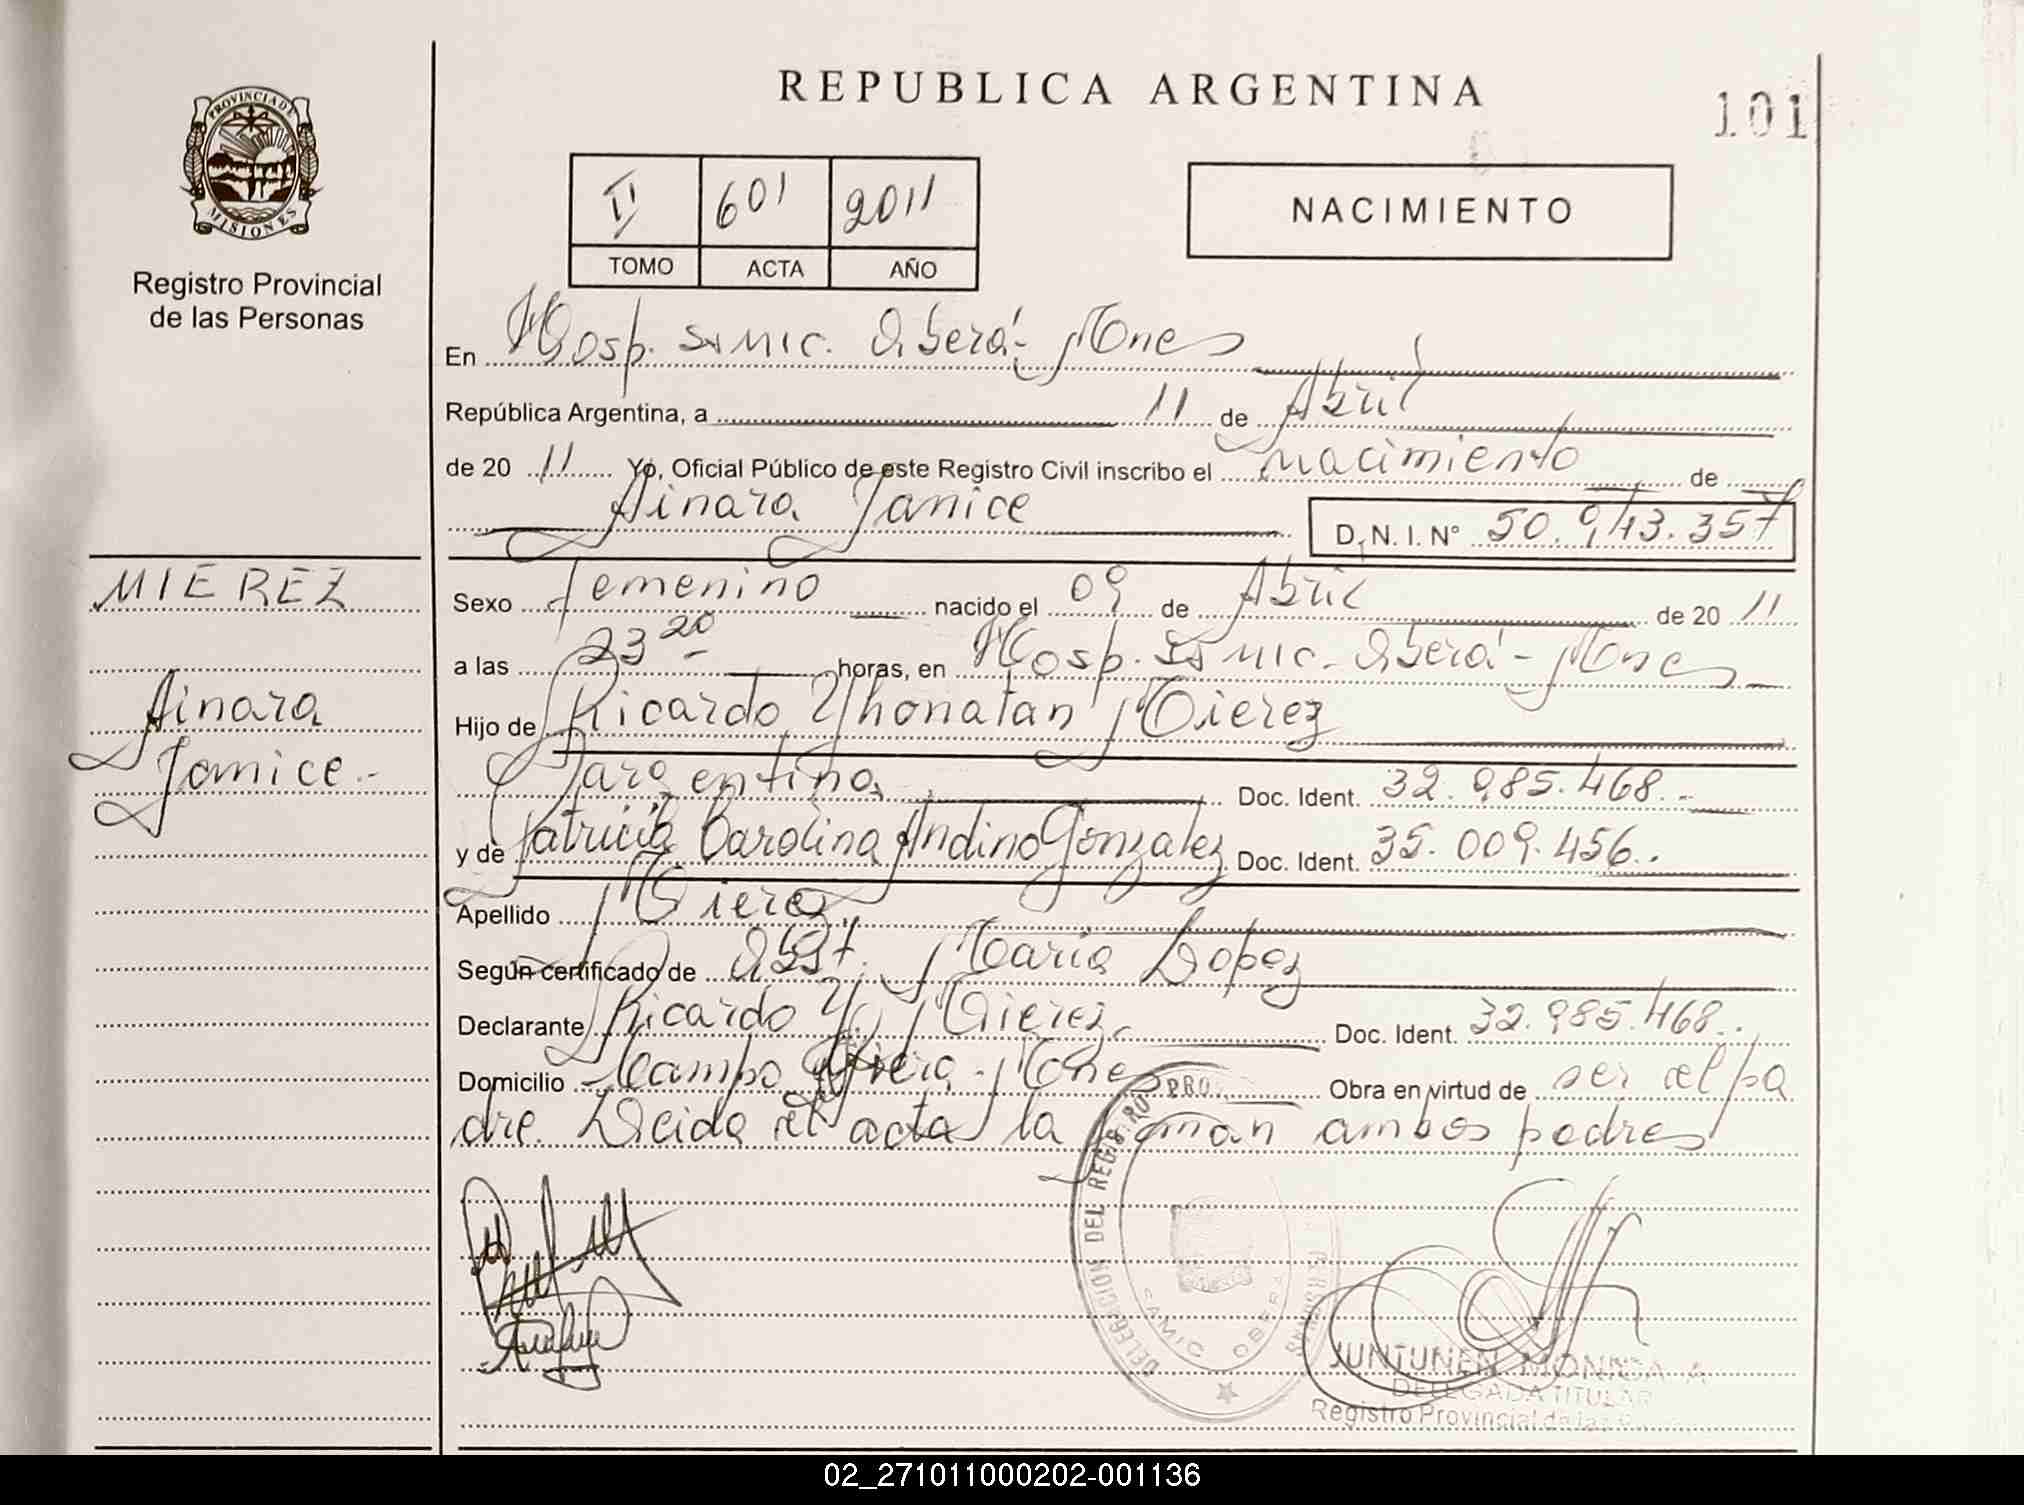 REPUBLICA ARGENTINA
101
PROVINCIA DE
MISIONES
Registro Provincial
de las Personas
II 601 2011
TOMO ACTA AÑO
NACIMIENTO
En Hosp. SAMIC. Oberá - Mnes
República Argentina, a 11 de Abril
de 20 11 Yo, Oficial Público de este Registro Civil inscribo el nacimiento de
Ainara Janice D. N. I. N° 50.943.357
MIEREZ
Ainara
Janice.-
Sexo femenino nacido el 09 de Abril de 20 11
a las 23 20 horas, en Hosp. SAMIC. Oberá - Mnes
Hijo de Ricardo Yhonatan Mierez
argentino, Doc. Ident. 32.985.468.-
y de Patricia Carolina Andino Gonzalez Doc. Ident. 35.009.456.
Apellido Mierez
Según certificado de Obst. Maria Lopez
Declarante Ricardo Y. Mierez Doc. Ident. 32.985.468.
Domicilio Campo Viera - Mnes Obra en virtud de ser el pa
dre. Leida el acta la firman ambos padres
DELEGACION DEL REGIS. PRO
SAMIC OBERA
JUNTUNEN MONICA A
DELEGADA TITULAR
Registro Provincial de las
02_271011000202-001136